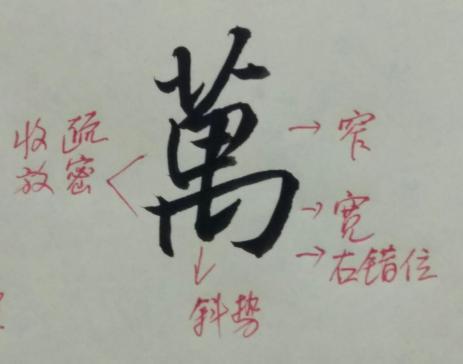 萬
收 疏
放 密
→ 窄
→ 宽
→ 右错位
斜势